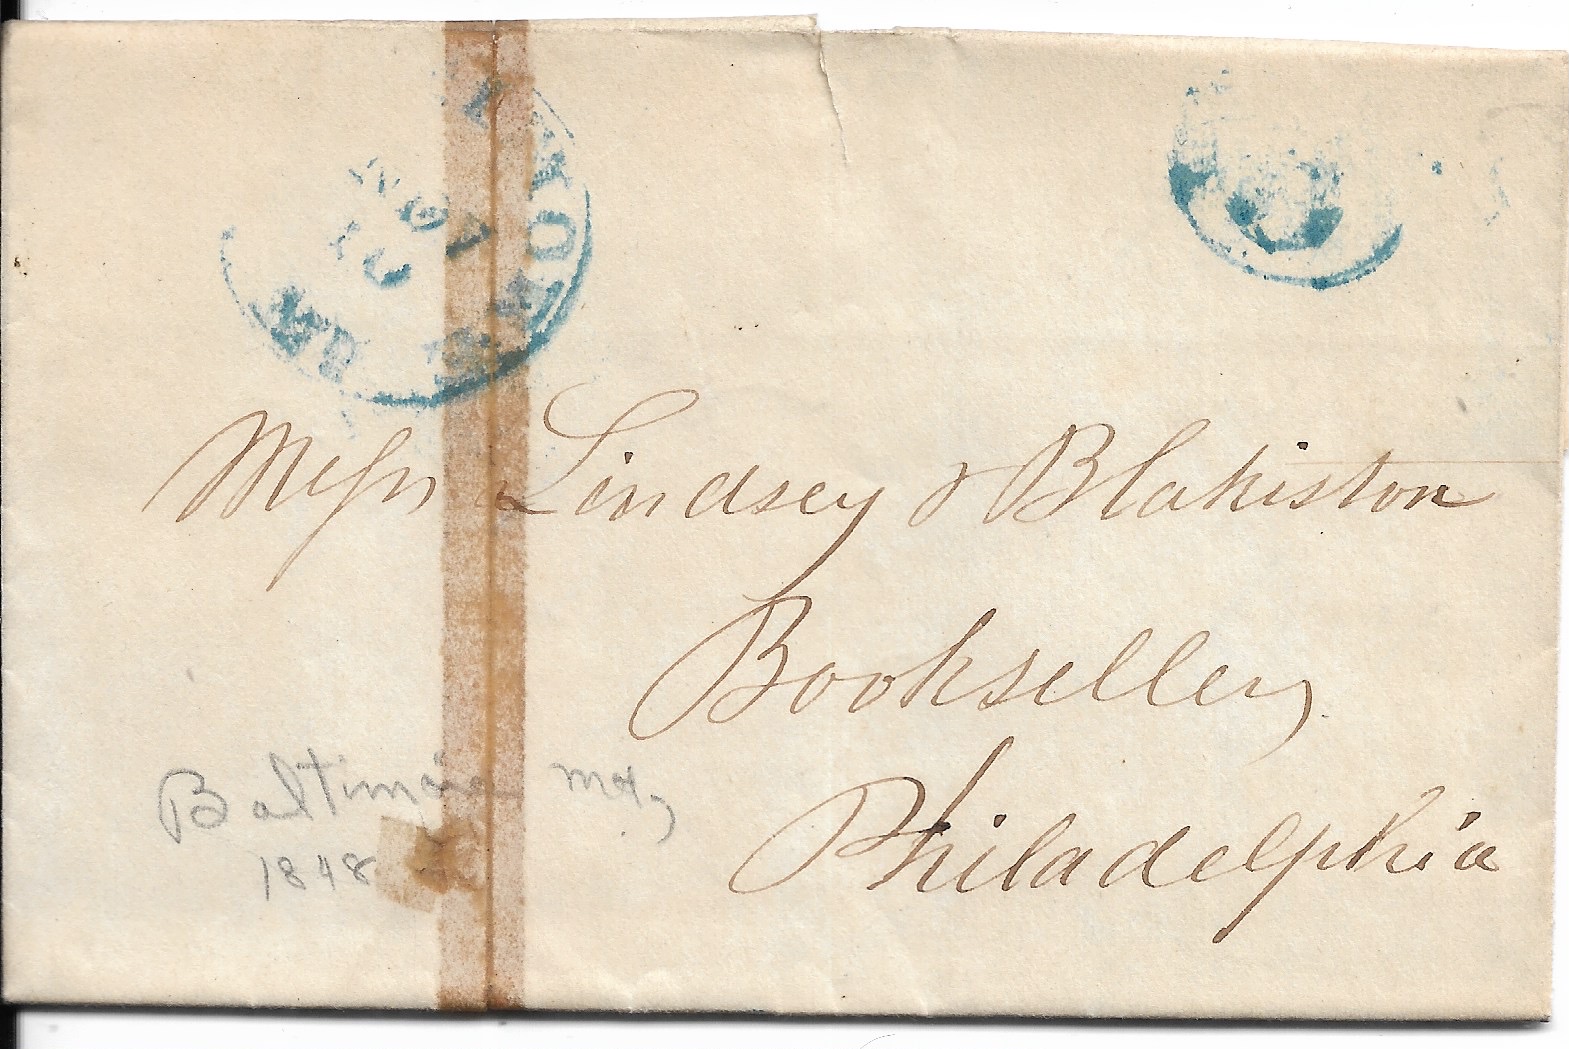 NOV
10
Md.
5
Messrs Lindsey & Blakiston
Booksellers
Philadelphia
Baltimore Md,
1848